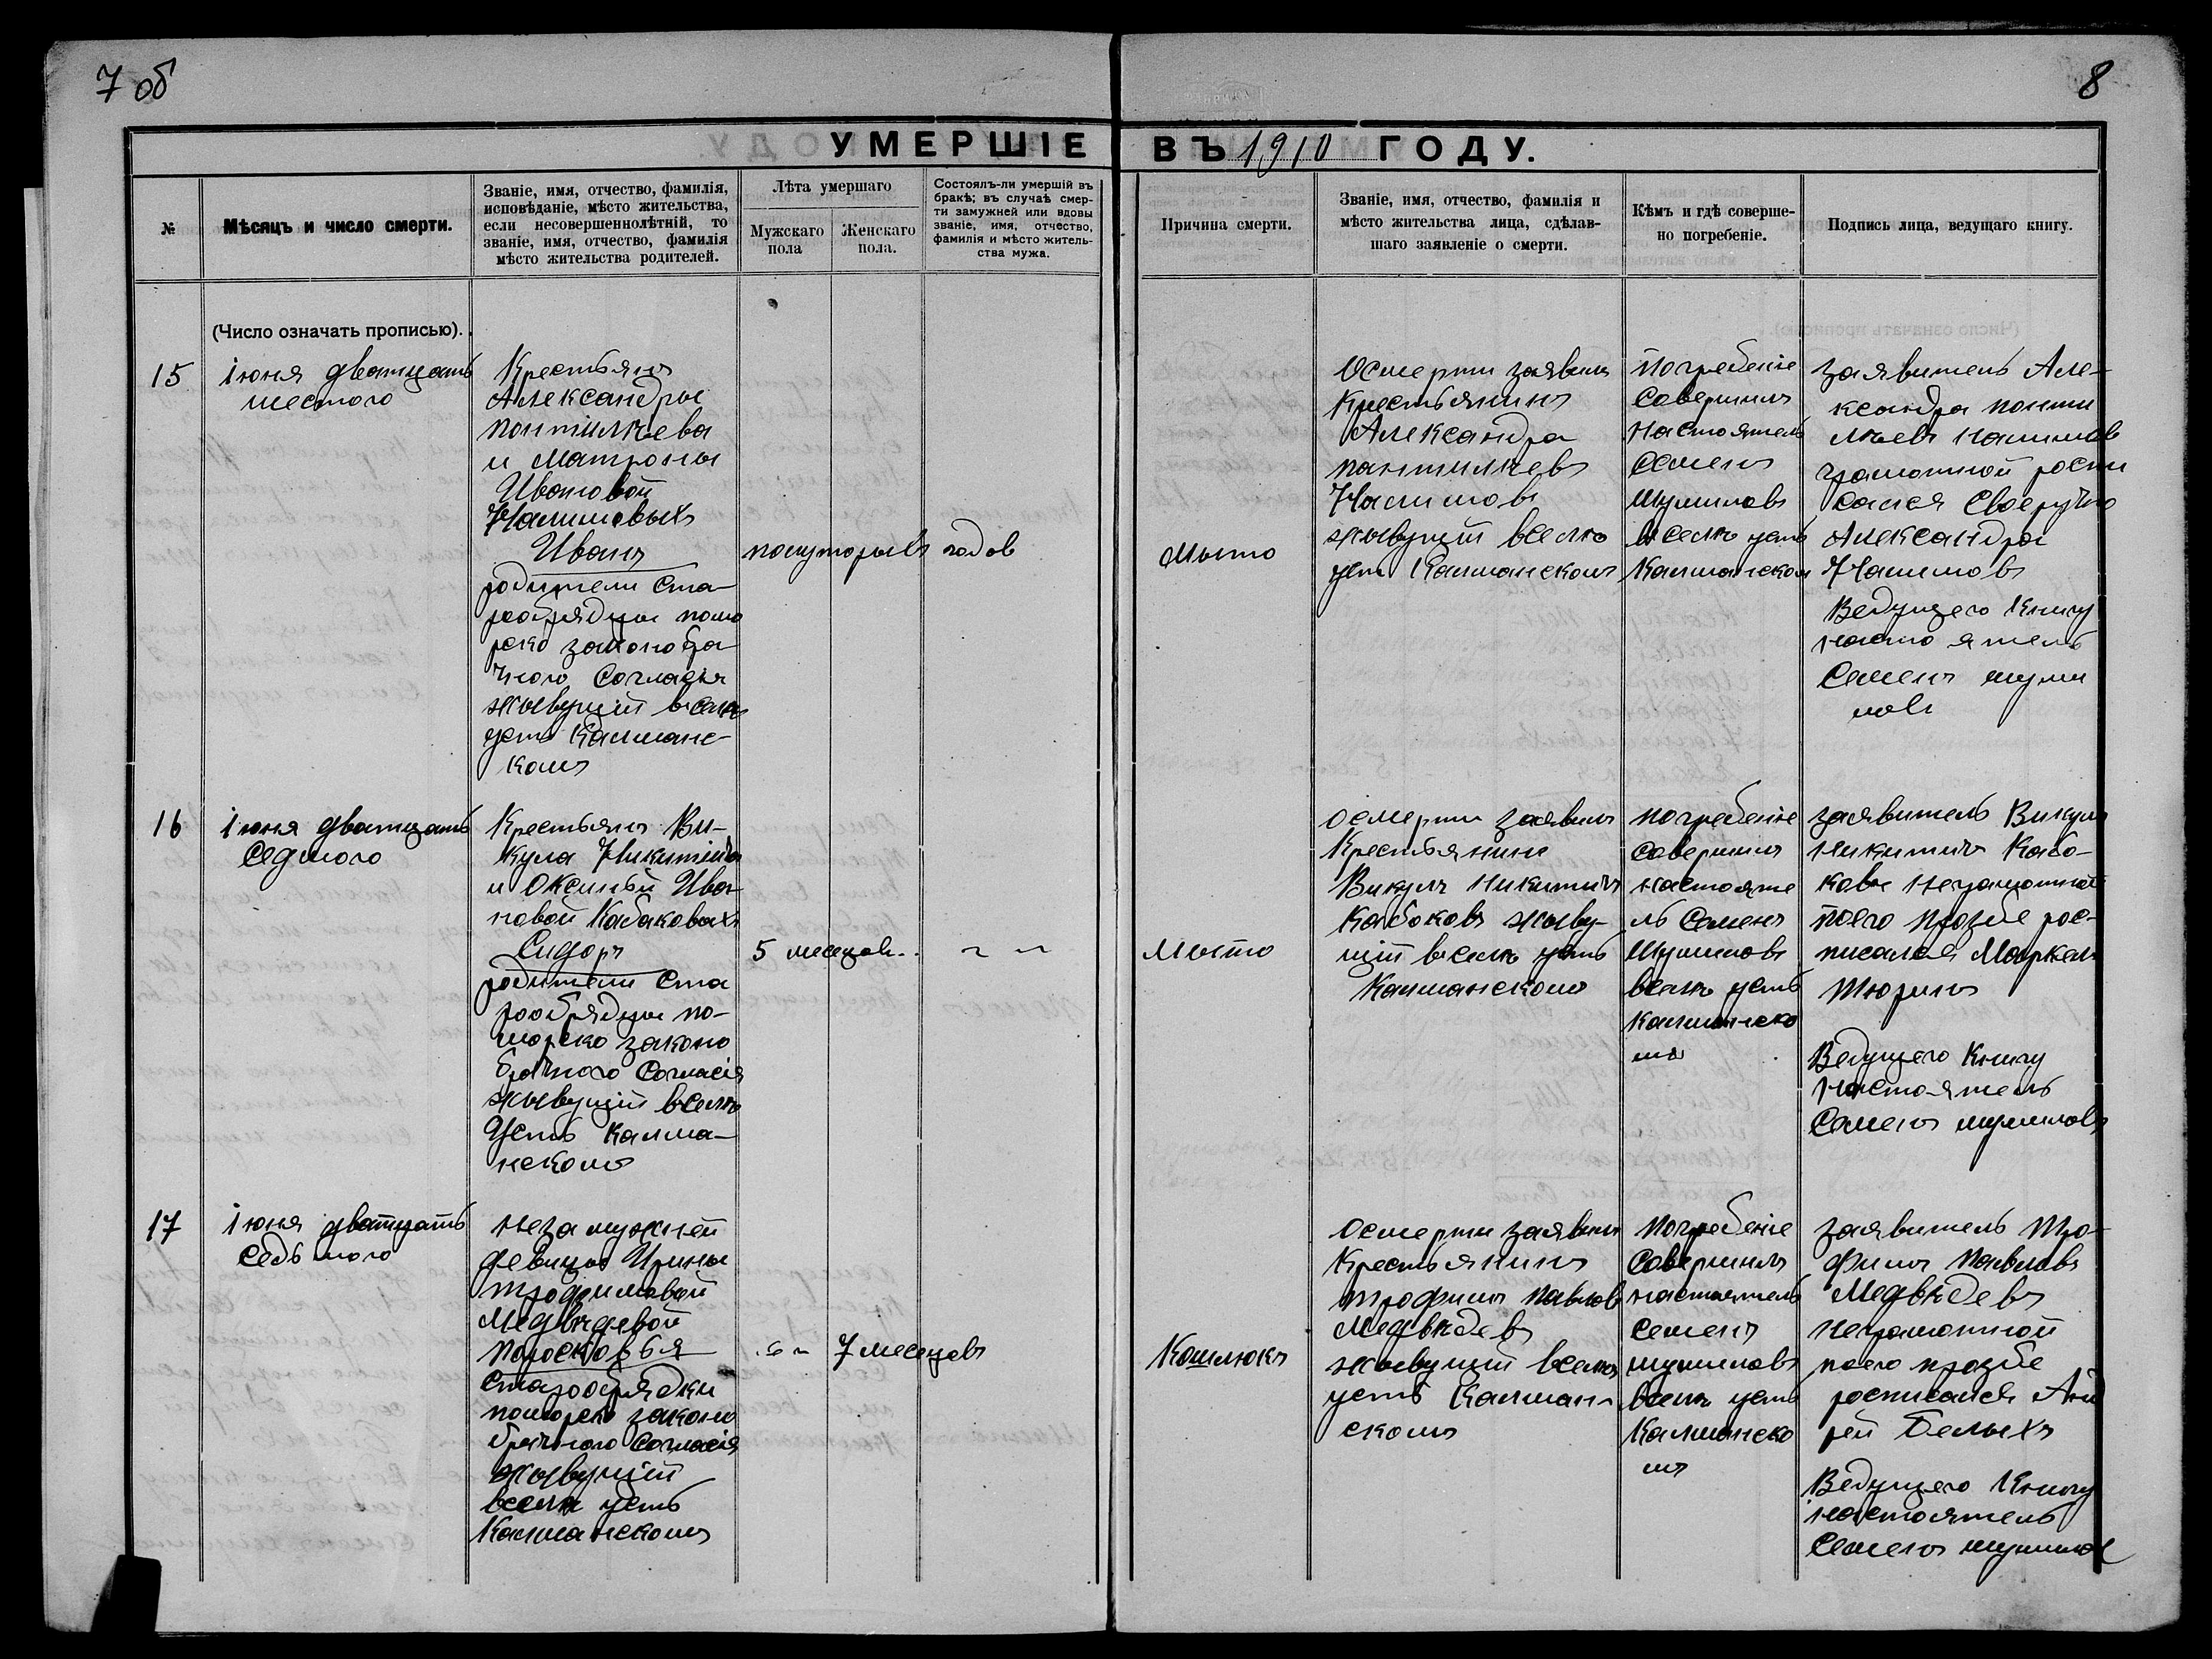 7 об
8
УМЕРШІЕ ВЪ 1910 ГОДУ.
№
Мѣсяцъ и число смерти.
Званіе, имя, отчество, фамилія,
исповѣданіе, мѣсто жительства,
если несовершеннолѣтній, то
званіе, имя, отчество, фамилія
мѣсто жительства родителей.
Лѣта умершаго
Мужскаго
пола
Женскаго
пола.
Состоялъ-ли умершій въ
бракѣ; въ случаѣ смер-
ти замужней или вдовы
званіе, имя, отчество,
фамилія и мѣсто житель-
ства мужа.
Причина смерти.
Званіе, имя, отчество, фамилія и
мѣсто жительства лица, сдѣлав-
шаго заявленіе о смерти.
Кѣмъ и гдѣ соверше-
но погребеніе.
Подпись лица, ведущаго книгу.
(Число означать прописью).
15
іюня дватцать
шестого
Крестьянъ
Александры
понтилѣева
и Матроны
Ивановой
Налимовых
Иванъ
родители Ста-
рообрядцы помо
рско законобра
чного Согласія
жывущіи в селѣ
усть Калманс-
комъ
полуторыъ годов
Мыто
Осмерти заявилъ
Крестьянинъ
Александра
пантилѣевъ
Налимовъ
жывущій в селѣ
усть Калманскомъ
погребеніе
Совершилъ
настоятель
Семенъ
Шумиловъ
в селѣ усть
Калманском
заявитель Але-
ксандра понти
лѣевъ Налимов
грамотной роспи
сался Своеручно
Александра
Налимовъ
Ведущего Книгу
настоятель
Семенъ шуми
ловъ
16
іюня дватцать
Седмого
Крестьянъ Ви-
кула Никитича
и Оксиньи Ива-
новой Кабаковыхъ
Сидоръ
родители Ста
рообрядцы по-
морско законо
брачного Согласія
жывущіи в селѣ
Усть Калма-
нскомъ
5 месецов
Мыто
осмерти заявилъ
Крестьянин
Викулъ Никитичъ
Кабоковъ жыву-
щіи в селѣ усть
Калманскомъ
погребеніе
совершилъ
настояте
ль Семенъ
Шумиловъ
в селѣ усть
Калманско
мъ
заявитель Викулъ
Никитичъ Кабо-
ковъ неграмотной
поего прозбе рос-
писался Маркел
Тюринъ
Ведущего Книгу
Настоятель
Семенъ шумиловъ
17
іюня дватцать
седьмого
незамужней
девицы Ирины
трофимовой
Медвѣдевой
поросковья
Старообрядки
поморско законо
брачного Согласія
жывущіи
в селѣ усть
Калманскомъ
7 месецовъ
Кашлюкъ
осмерти заявилъ
Крестьянинъ
трофимъ павлов
Медвѣдевъ
жывущій в селѣ
усть Калман-
скомъ
погребеніе
Совершилъ
настоятель
семенъ
шумиловъ
в селѣ усть
Калманско
мъ
заявитель тро-
фимъ павловъ
Медвѣдевъ
неграмотной
поего прозбе
росписался Анд
рей Белыхъ
Ведущего Книгу
настоятель
Семенъ шумилов